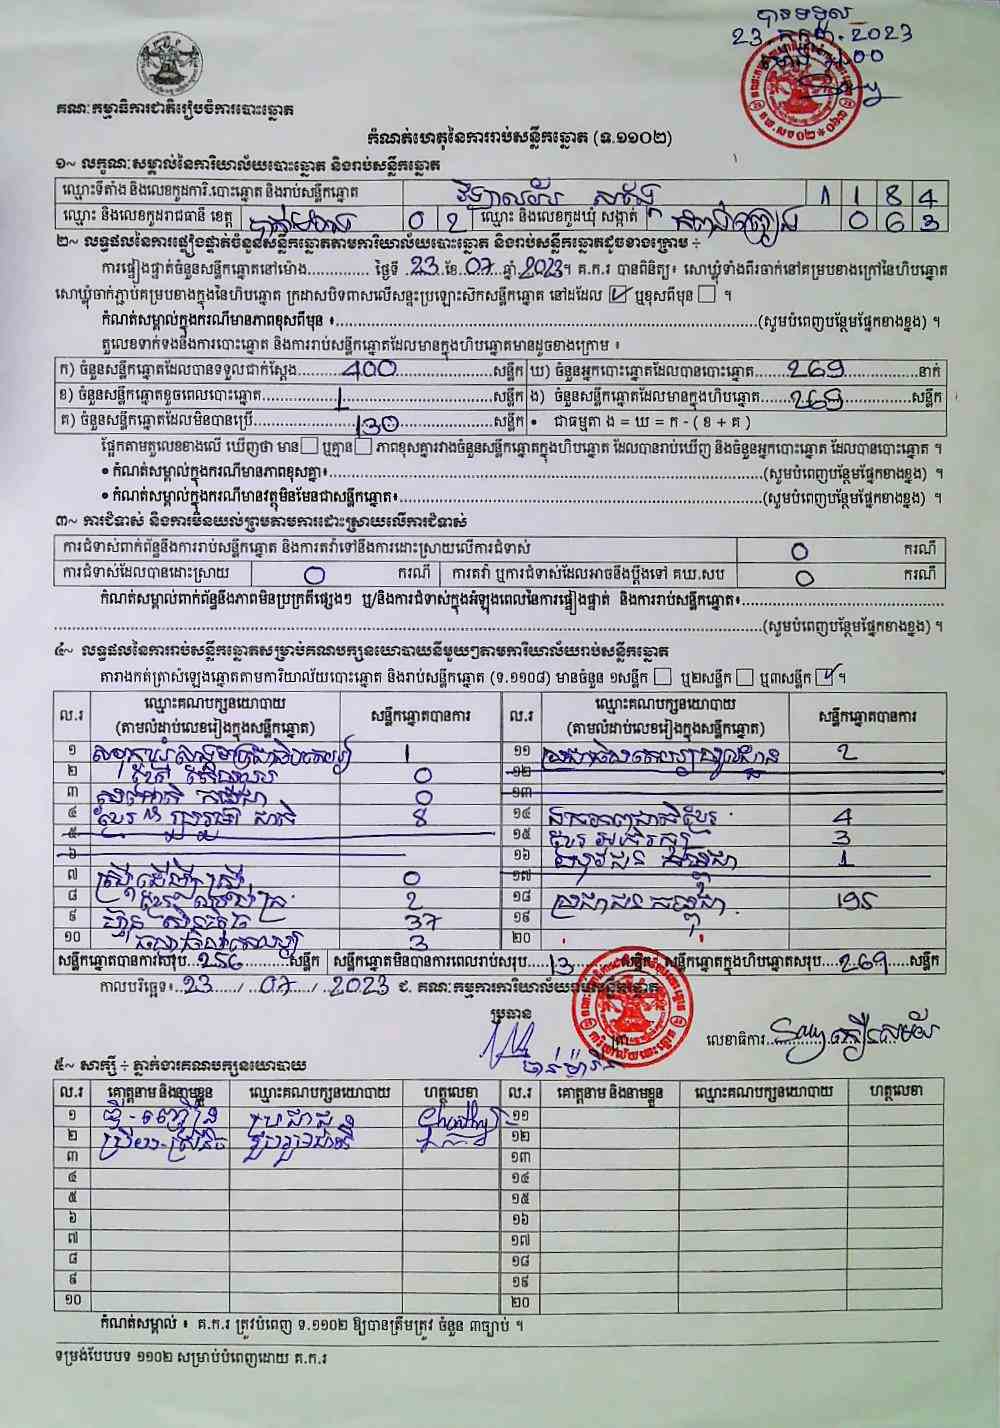 បានទទួល
23 កក្កដា. 2023
ម៉ោង
គណៈកម្មាធិការជាតិរៀបចំការបោះឆ្នោត
កំណត់ហេតុនៃការរាប់សន្លឹកឆ្នោត (ទ.១១០២)
១~ លក្ខណៈសម្គាល់នៃការិយាល័យបោះឆ្នោត និងរាប់សន្លឹកឆ្នោត
ឈ្មោះទីតាំង និងលេខកូដការិ.បោះឆ្នោត និងរាប់សន្លឹកឆ្នោត វិទ្យាល័យ 1 1 8 4
ឈ្មោះ និងលេខកូដរាជធានី ខេត្ត បាត់ដំបង 0 2 ឈ្មោះ និងលេខកូដឃុំ សង្កាត់ 0 6 3
២~ លទ្ធផលនៃការផ្ទៀងផ្ទាត់ចំនួនសន្លឹកឆ្នោតតាមការិយាល័យបោះឆ្នោត និងរាប់សន្លឹកឆ្នោតដូចខាងក្រោម ÷
ការផ្ទៀងផ្ទាត់ចំនួនសន្លឹកឆ្នោតនៅម៉ោង.............. ថ្ងៃទី .23.ខែ.07..ឆ្នាំ.2023។ គ.ក.រ បានពិនិត្យ៖ សោឃ្លុំទាំងពីរចាក់នៅគម្របខាងក្រៅនៃហិបឆ្នោត
សោឃ្លុំចាក់ភ្ជាប់គម្របខាងក្នុងនៃហិបឆ្នោត ក្រដាសបិទពាសលើសន្ទះប្រឡោះស៊កសន្លឹកឆ្នោត នៅដដែល ☑ ឬខុសពីមុន ☐ ។
កំណត់សម្គាល់ក្នុងករណីមានភាពខុសពីមុន ៖..............................(សូមបំពេញបន្ថែមផ្នែកខាងខ្នង) ។
តួលេខទាក់ទងនឹងការបោះឆ្នោត និងការរាប់សន្លឹកឆ្នោតដែលមានក្នុងហិបឆ្នោតមានដូចខាងក្រោម ៖
ក) ចំនួនសន្លឹកឆ្នោតដែលបានទទួលជាក់ស្តែង........400........សន្លឹក ឃ) ចំនួនអ្នកបោះឆ្នោតដែលបានបោះឆ្នោត......269......នាក់
ខ) ចំនួនសន្លឹកឆ្នោតខូចពេលបោះឆ្នោត........1........សន្លឹក ង) ចំនួនសន្លឹកឆ្នោតដែលមានក្នុងហិបឆ្នោត......269......សន្លឹក
គ) ចំនួនសន្លឹកឆ្នោតដែលមិនបានប្រើ........130........សន្លឹក • ជាធម្មតា ង = ឃ = ក - ( ខ + គ )
ផ្អែកតាមតួលេខខាងលើ ឃើញថា មាន ☐ ឬគ្មាន ☐ ភាពខុសគ្នារវាងចំនួនសន្លឹកឆ្នោតក្នុងហិបឆ្នោត ដែលបានរាប់ឃើញ និងចំនួនអ្នកបោះឆ្នោត ដែលបានបោះឆ្នោត ។
• កំណត់សម្គាល់ក្នុងករណីមានភាពខុសគ្នា៖..............................(សូមបំពេញបន្ថែមផ្នែកខាងខ្នង) ។
• កំណត់សម្គាល់ក្នុងករណីមានវត្ថុមិនមែនជាសន្លឹកឆ្នោត៖..............................(សូមបំពេញបន្ថែមផ្នែកខាងខ្នង) ។
៣~ ការជំទាស់ និងការមិនយល់ព្រមតាមការដោះស្រាយលើការជំទាស់
ការជំទាស់ពាក់ព័ន្ធនឹងការរាប់សន្លឹកឆ្នោត និងការតវ៉ាទៅនឹងការដោះស្រាយលើការជំទាស់ 0 ករណី
ការជំទាស់ដែលបានដោះស្រាយ 0 ករណី ការតវ៉ា ឬការជំទាស់ដែលអាចនឹងប្តឹងទៅ គឃ.សប 0 ករណី
កំណត់សម្គាល់ពាក់ព័ន្ធនឹងភាពមិនប្រក្រតីផ្សេងៗ ឬ/និងការជំទាស់ក្នុងអំឡុងពេលនៃការផ្ទៀងផ្ទាត់ និងការរាប់សន្លឹកឆ្នោត៖..............................
..............................(សូមបំពេញបន្ថែមផ្នែកខាងខ្នង) ។
៤~ លទ្ធផលនៃការរាប់សន្លឹកឆ្នោតសម្រាប់គណបក្សនយោបាយនីមួយៗតាមការិយាល័យរាប់សន្លឹកឆ្នោត
តារាងកត់ត្រាសំឡេងឆ្នោតតាមការិយាល័យបោះឆ្នោត និងរាប់សន្លឹកឆ្នោត (ទ.១១០៨) មានចំនួន ១សន្លឹក ☐ ឬ២សន្លឹក ☐ ឬ៣សន្លឹក ☑ ។
ល.រ ឈ្មោះគណបក្សនយោបាយ (តាមលំដាប់លេខរៀងក្នុងសន្លឹកឆ្នោត) សន្លឹកឆ្នោតបានការ ល.រ ឈ្មោះគណបក្សនយោបាយ (តាមលំដាប់លេខរៀងក្នុងសន្លឹកឆ្នោត) សន្លឹកឆ្នោតបានការ
១ 1 ១១ 2
២ ខ្មែរ 0 ១២
៣ 0 ១៣
៤ ខ្មែររួបរួមជាតិ 8 ១៤ 4
៥ ១៥ 3
៦ ១៦ 1
៧ ស្ត្រីដើម្បីស្ត្រី 0 ១៧
៨ 2 ១៨ ប្រជាជនកម្ពុជា 195
៩ ហ៊្វុនស៊ិនប៉ិច 37 ១៩
១០ 3 ២០
សន្លឹកឆ្នោតបានការសរុប...256......សន្លឹក សន្លឹកឆ្នោតមិនបានការពេលរាប់សរុប....13......សន្លឹក សន្លឹកឆ្នោតក្នុងហិបឆ្នោតសរុប....269....សន្លឹក
កាលបរិច្ឆេទ៖..23....../..07..../..2023 ជ. គណៈកម្មការការិយាល័យរាប់សន្លឹកឆ្នោត
ប្រធាន
លេខាធិការ
៥~ សាក្សី ÷ ភ្នាក់ងារគណបក្សនយោបាយ
ល.រ គោត្តនាម និងនាមខ្លួន ឈ្មោះគណបក្សនយោបាយ ហត្ថលេខា ល.រ គោត្តនាម និងនាមខ្លួន ឈ្មោះគណបក្សនយោបាយ ហត្ថលេខា
១ ប្រជាជន ១១
២ រួបរួមជាតិ ១២
៣ ១៣
៤ ១៤
៥ ១៥
៦ ១៦
៧ ១៧
៨ ១៨
៩ ១៩
១០ ២០
កំណត់សម្គាល់ ៖ គ.ក.រ ត្រូវបំពេញ ទ.១១០២ ឱ្យបានត្រឹមត្រូវ ចំនួន ៣ច្បាប់ ។
ទម្រង់បែបបទ ១១០២ សម្រាប់បំពេញដោយ គ.ក.រ